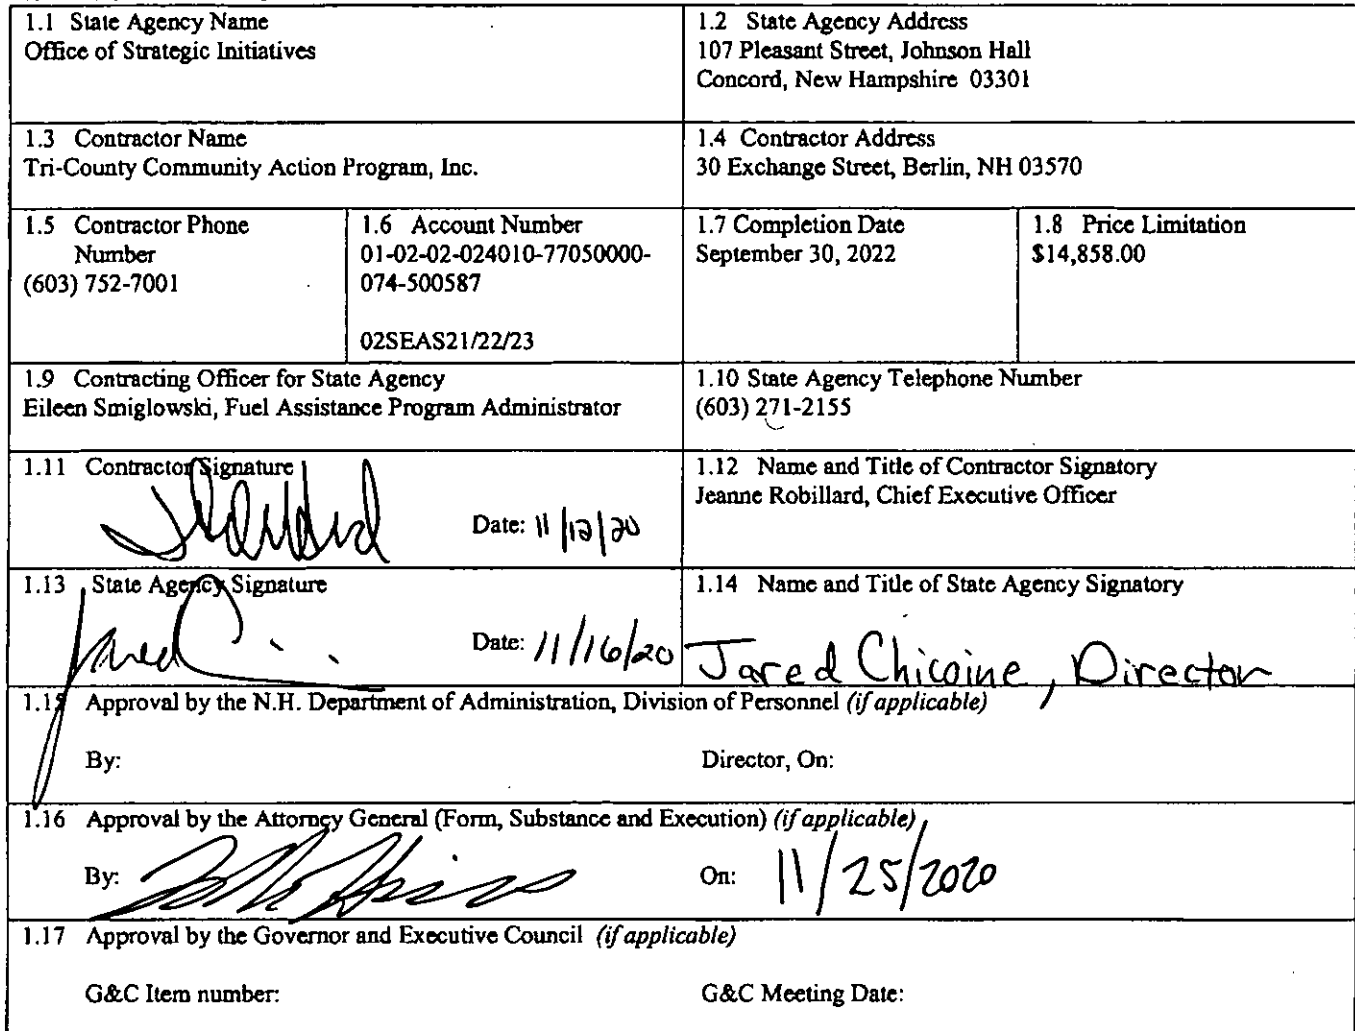 1.1 State Agency Name
Office of Strategic Initiatives
1.2 State Agency Address
107 Pleasant Street, Johnson Hall
Concord, New Hampshire 03301
1.3 Contractor Name
Tri-County Community Action Program, Inc.
1.4 Contractor Address
30 Exchange Street, Berlin, NH 03570
1.5 Contractor Phone
Number
(603) 752-7001
1.6 Account Number
01-02-02-024010-77050000-
074-500587
02SEAS21/22/23
1.7 Completion Date
September 30, 2022
1.8 Price Limitation
$14,858.00
1.9 Contracting Officer for State Agency
Eileen Smiglowski, Fuel Assistance Program Administrator
1.10 State Agency Telephone Number
(603) 271-2155
1.11 Contractor Signature
Date: 11/12/20
1.12 Name and Title of Contractor Signatory
Jeanne Robillard, Chief Executive Officer
1.13 State Agency Signature
Date: 11/16/20
1.14 Name and Title of State Agency Signatory
Jared Chicoine, Director
1.15 Approval by the N.H. Department of Administration, Division of Personnel (if applicable)
By: Director, On:
1.16 Approval by the Attorney General (Form, Substance and Execution) (if applicable)
By: On: 11/25/2020
1.17 Approval by the Governor and Executive Council (if applicable)
G&C Item number: G&C Meeting Date: